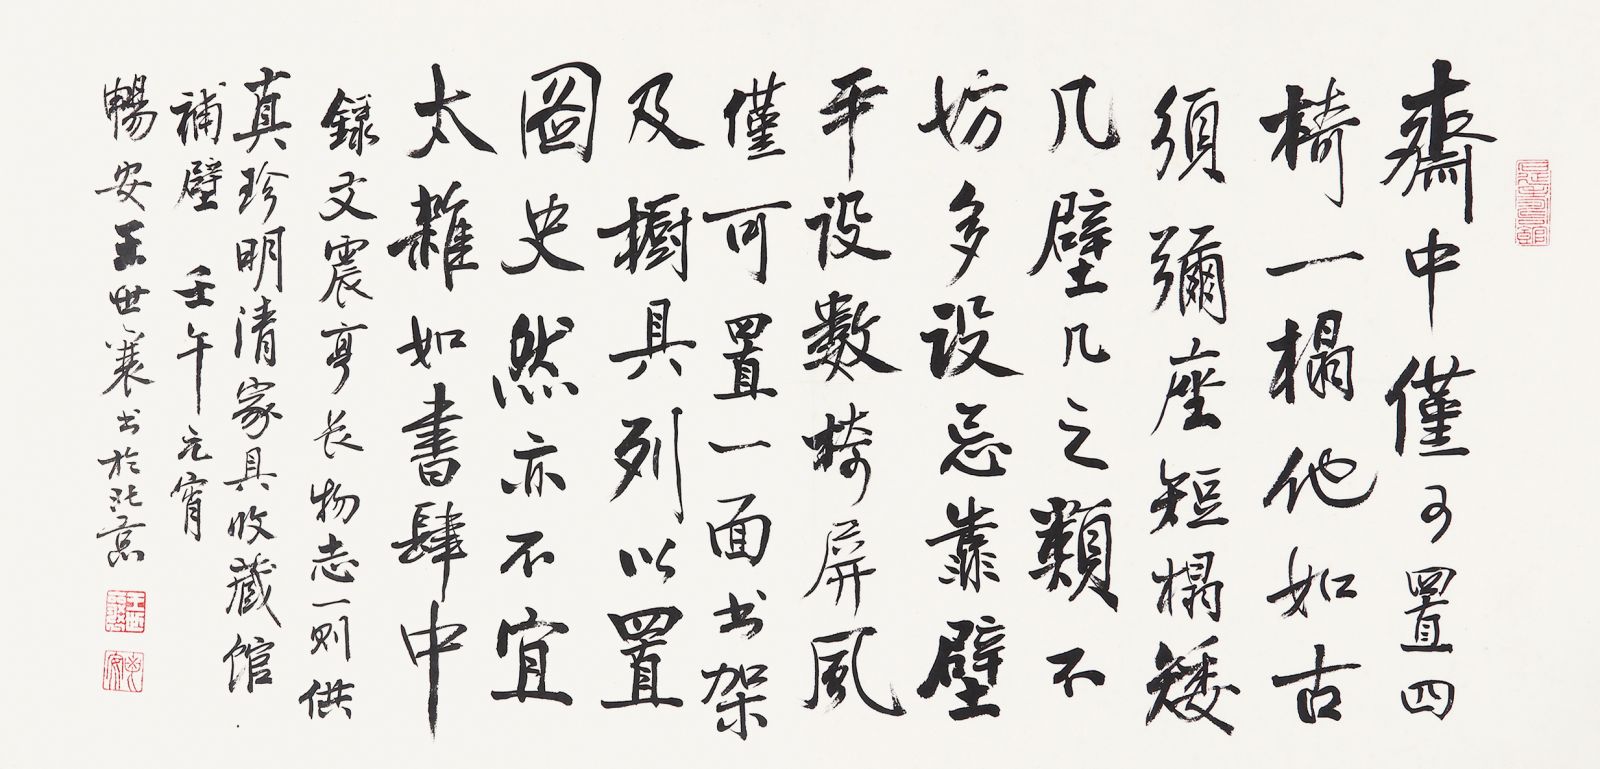 齋中僅可置四
椅一榻他如古
須彌座短榻矮
几壁几之類不
妨多设忌靠壁
平设數椅屏风
僅可置一面书架
及橱具列以置
圖史然亦不宜
太雜如書肆中
録文震亨长物志一则供
真珍明清家具收藏馆
補壁 壬午元宵
暢安王世襄书於北京